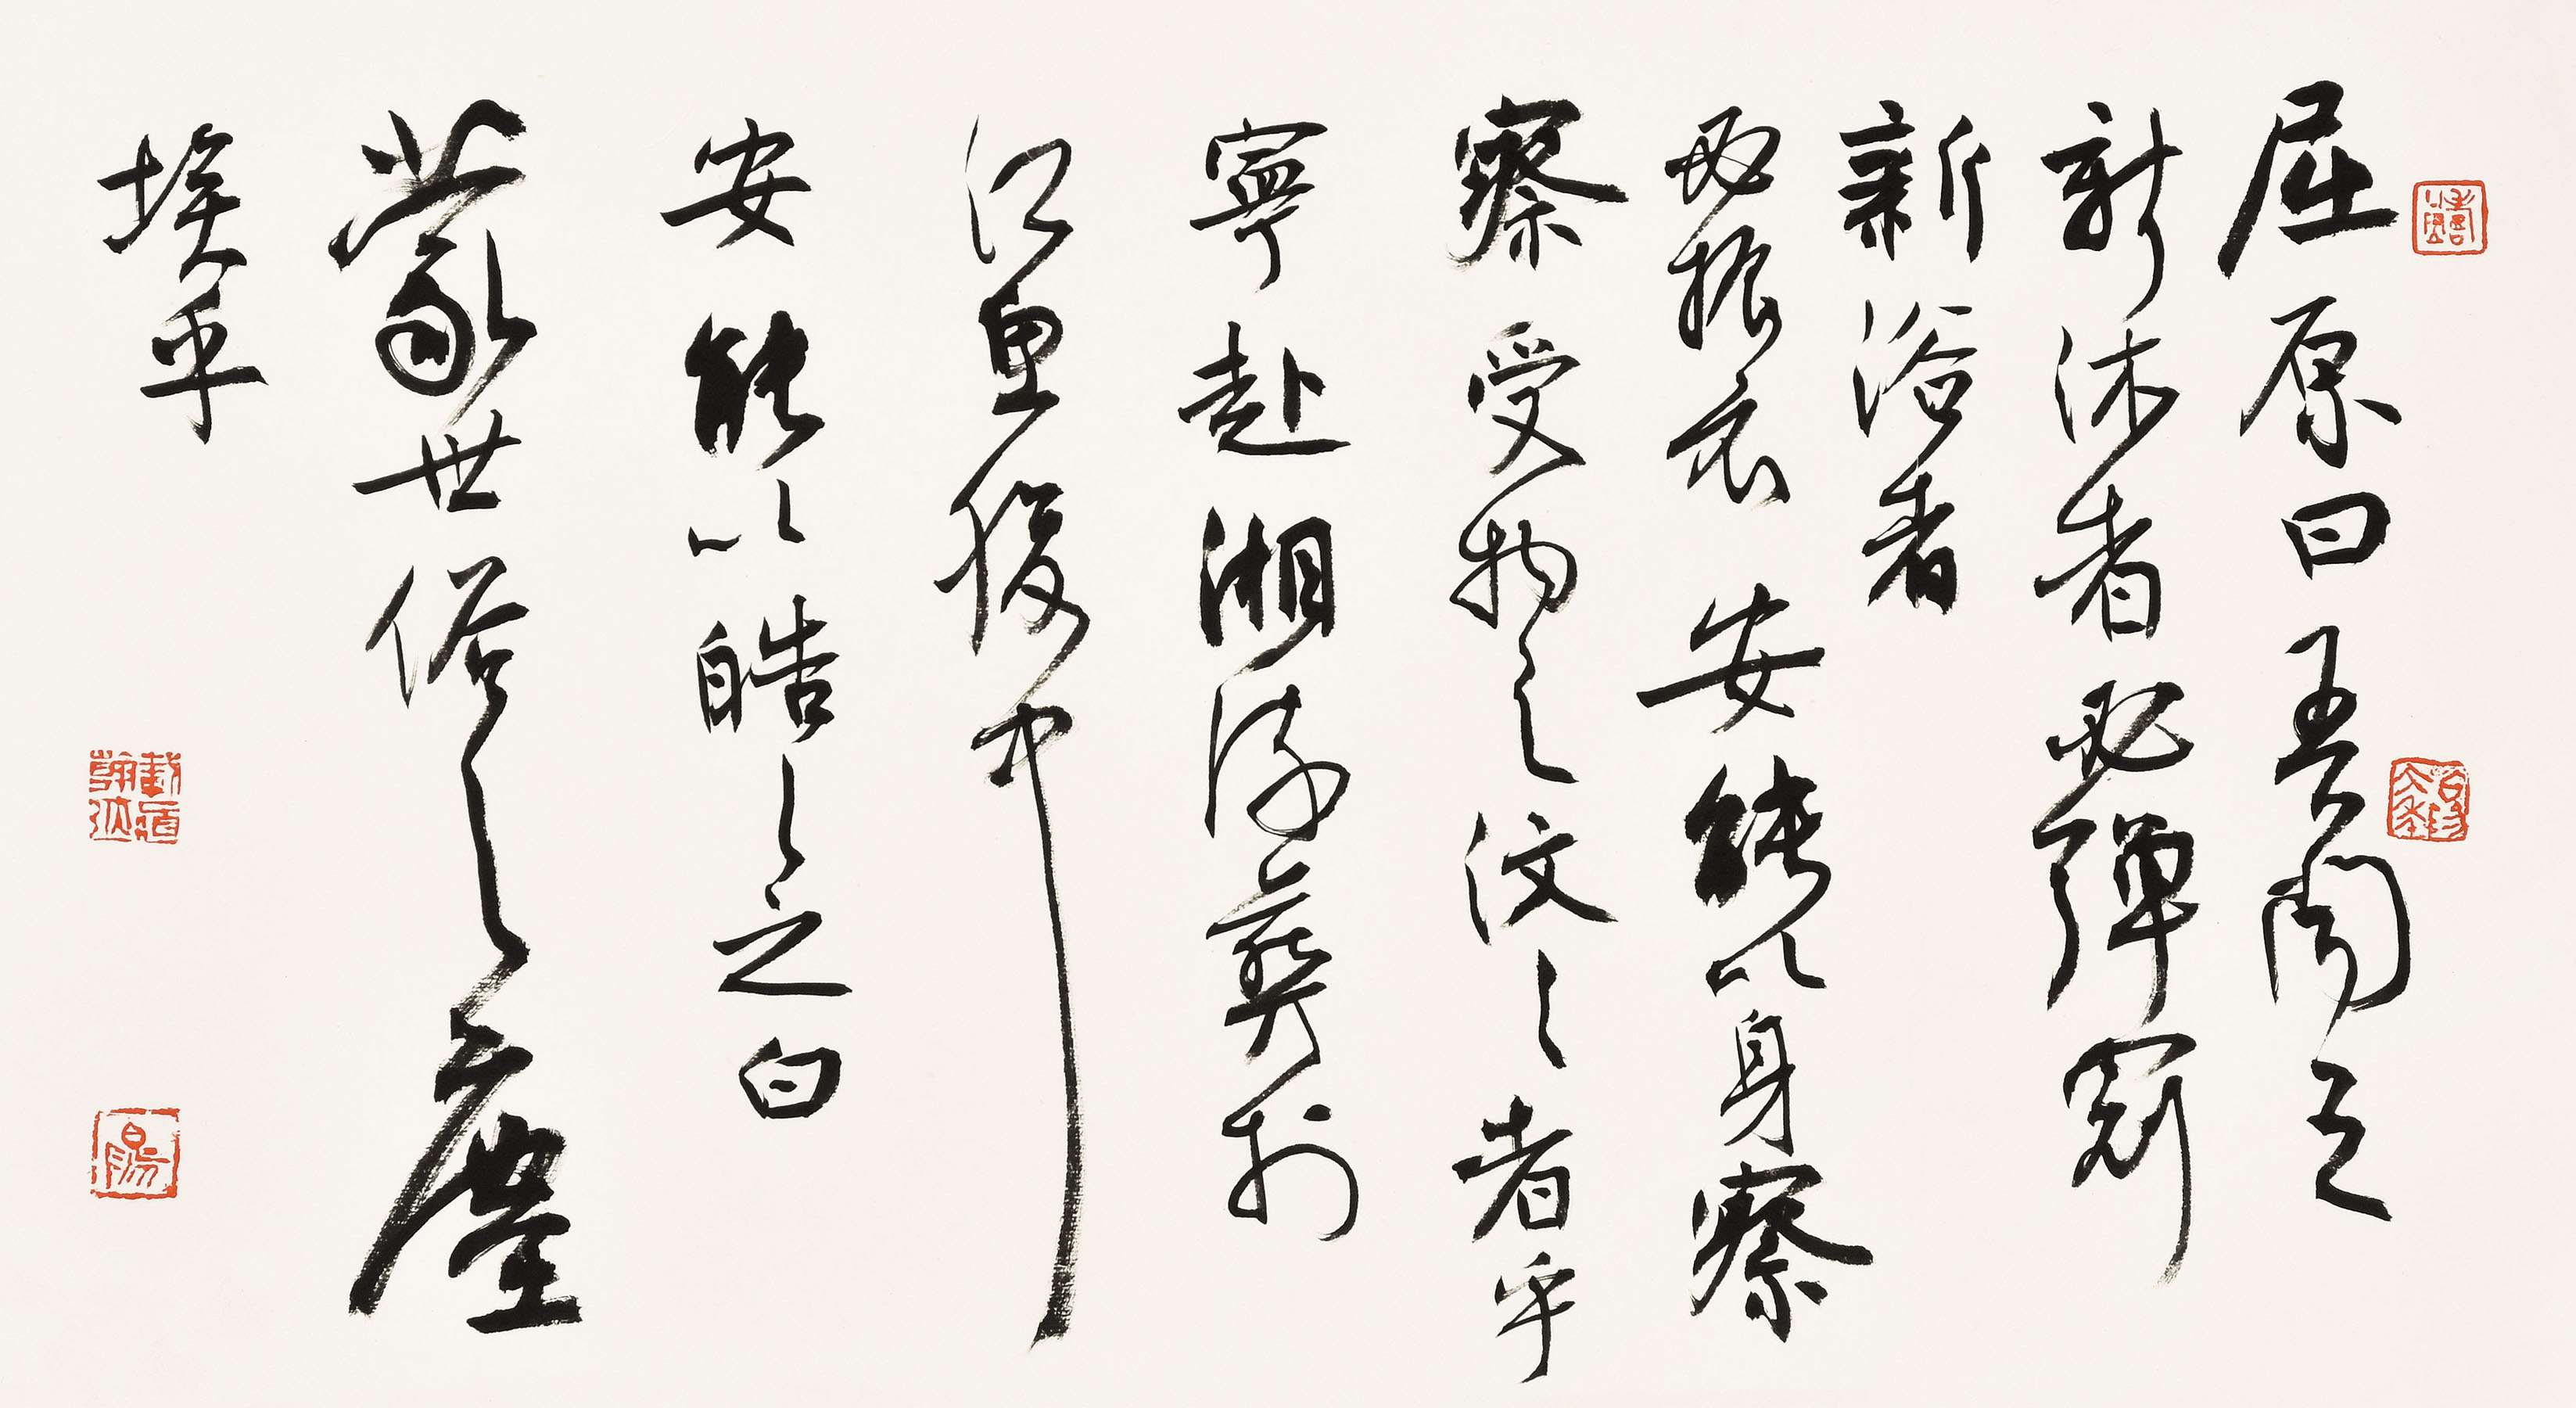 屈原曰吾聞之
新沐者必彈冠
新浴者
必振衣安能以身察
察受物之汶々者乎
寧赴湘流葬於
江魚腹中
安能以皓々之白
蒙世俗之塵
埃乎